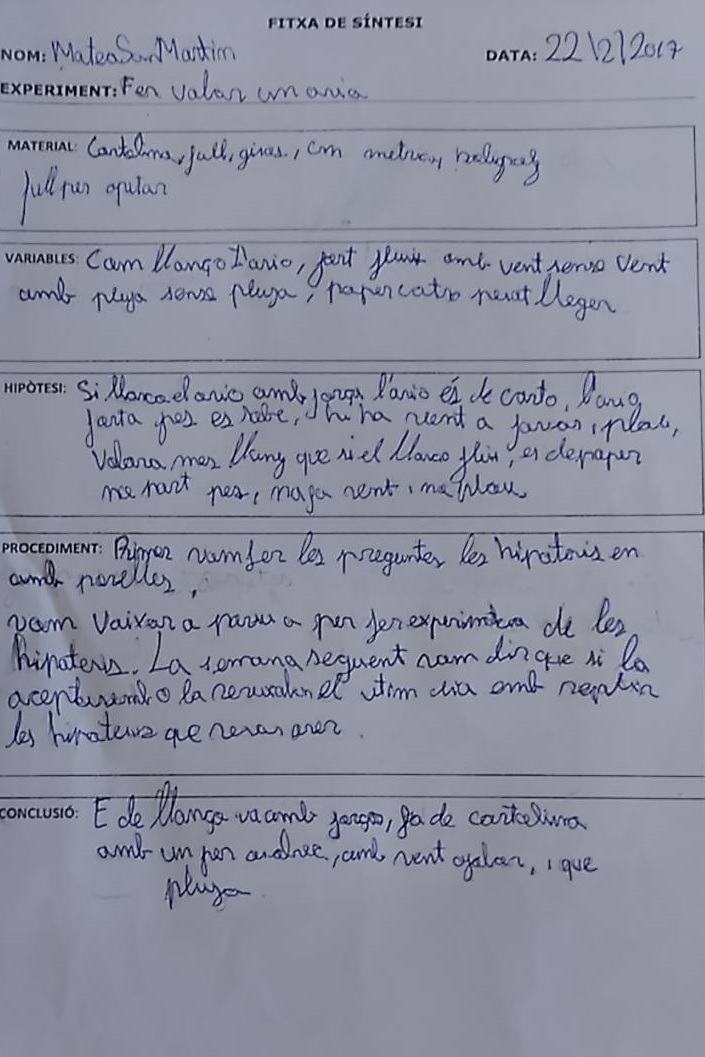 FITXA DE SÍNTESI
NOM: Mateo San Martin
DATA: 22/2/2017
EXPERIMENT: Fer valar un avia
MATERIAL: Cartolina, full, gires, cm metres,
full per aputar
VARIABLES: Cam llanço l'avio, fort fluix amb vent sense vent
amb pluja sense pluja, paper catro pesat lleger
HIPÒTESI: Si llança el avio amb força l'avio és de carto, l'avio
porta pes es sobe, hi ha vent a favor i plou,
Valara mes lluny que si el llanço fluix, es de paper
no port pes, no fa vent i no plou
PROCEDIMENT: Primer vam fer les preguntes les hipotesis en
amb parelles,
vam vaixar a per fer de les
hipotesis. La semana seguent vam dir que si la
o la el utim dia amb
les hipotesis que
CONCLUSIÓ: E de llança va amb força, fa de cartolina
amb un pes , amb vent , i que
pluja